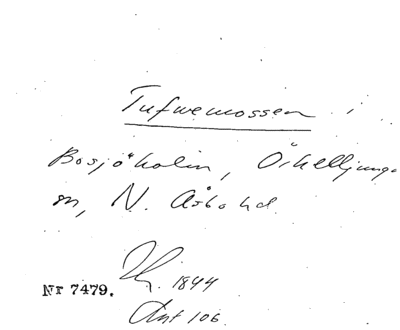 Tufwemossen
Bosjöholm, Örkelljunga
sn, N. Åsbo hd.
1844
Nr 7479.
Ant 106.